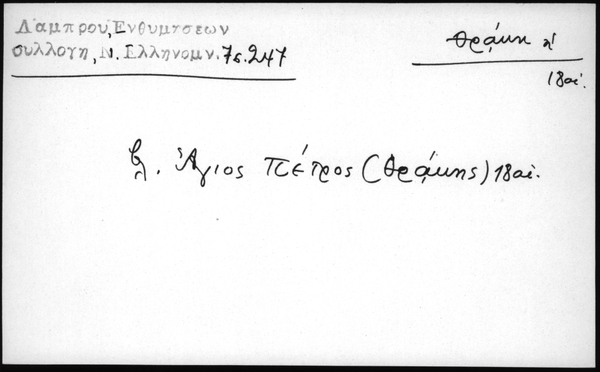 Λάμπρου, Ἐνθυμήσεων
συλλογή, Ν. Ἑλληνομν. 7 σ. 247
Θράκη
18 αἰ.
βλ. Ἅγιος Πέτρος (Θράκης) 18 αἰ.